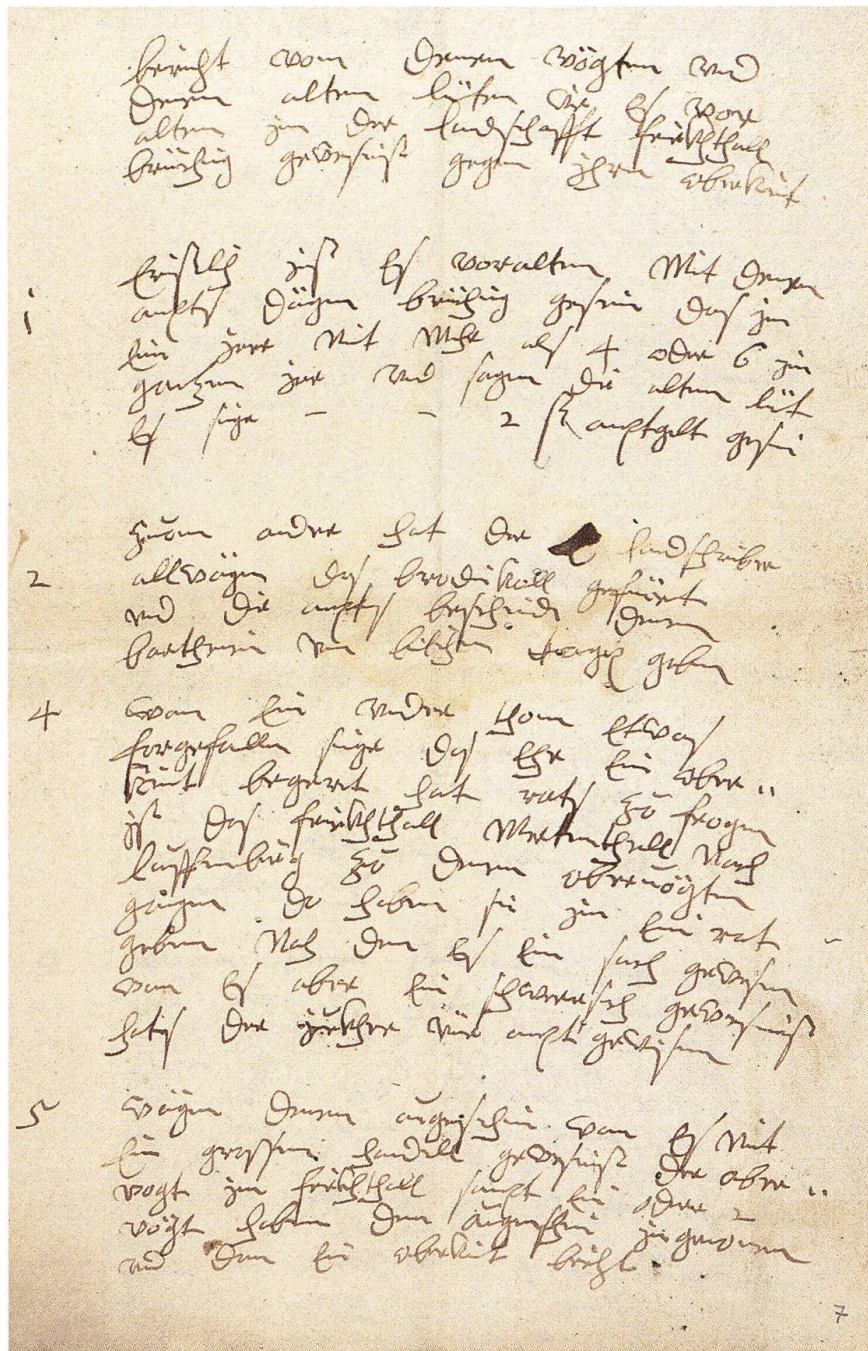 bericht vom denen vögten vnd
denen alten lüten wie Es vor
alten jn der landschafft frickhthall
brüchig gewesist gegen jhrn oberkeit
Erstlich jst Es voralten Mit denen
1 ampts dägen brüchig gesein das jn
Ein jare Nit Mehr als 4 oder 6 jm
gantzen jar vnd sagen die alten lüt
Es sige – – 2 ß amptgelt gesin
Zuom ander hat der landschriber
2 allwägen das brodikoll gefüert
vnd die ampts bescheide denen
vm geben
4 wan Ein vnder than Etwas
forgefallen sige das Ehr Ein ober..
keit begert hat rats zů frogen
jst das frickhthall Nach
lauffenbürg zů denen obervögten
gangen do haben sie jm Ein rat
geben Nach dem Es Ein sach gewesen
wan Es aber Ein schwere sach gewesist
hats der junkher für ampt gewisen
5 wägen denen augenschin wan Es Nit
Ein grossen handell gewesist der ober..
vogt jm frickhthall sampt Ein oder 2
vögt haben den augenschin jngenomen
vnd dan Ein oberkeit bricht.
7